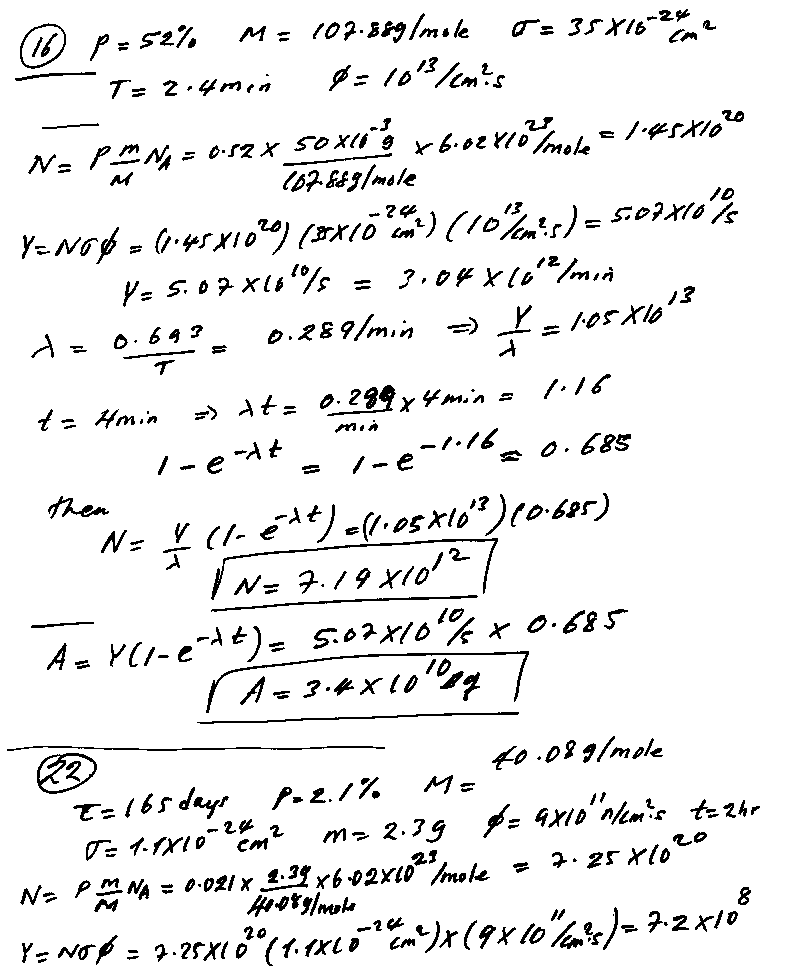 (16) P = 52% M = 107.88g/mole σ = 35X10^-24 cm^2
T = 2.4min ϕ = 10^13/cm^2.s
N = P m/M N_A = 0.52 X 50X10^-3 g/107.88g/mole X 6.02X10^23/mole = 1.45X10^20
Y = Nσϕ = (1.45X10^20)(35X10^-24 cm^2)(10^13/cm^2.s) = 5.07X10^10/s
Y = 5.07X10^10/s = 3.04X10^12/min
λ = 0.693/T = 0.289/min ⇒ Y/λ = 1.05X10^13
t = 4min ⇒ λt = 0.289/min X 4min = 1.16
1-e^-λt = 1-e^-1.16 = 0.685
then
N = Y/λ (1-e^-λt) = (1.05X10^13)(0.685)
N = 7.19X10^12
A = Y(1-e^-λt) = 5.07X10^10/s X 0.685
A = 3.4X10^10 Bq
(22) τ = 165days P = 2.1% M = 40.08g/mole
σ = 1.1X10^-24 cm^2 m = 2.3g ϕ = 9X10^11 n/cm^2.s t = 2hr
N = P m/M N_A = 0.021 X 2.3g/40.08g/mole X 6.02X10^23/mole = 7.25X10^20
Y = Nσϕ = 7.25X10^20 (1.1X10^-24 cm^2)X(9X10^11/cm^2.s) = 7.2X10^8